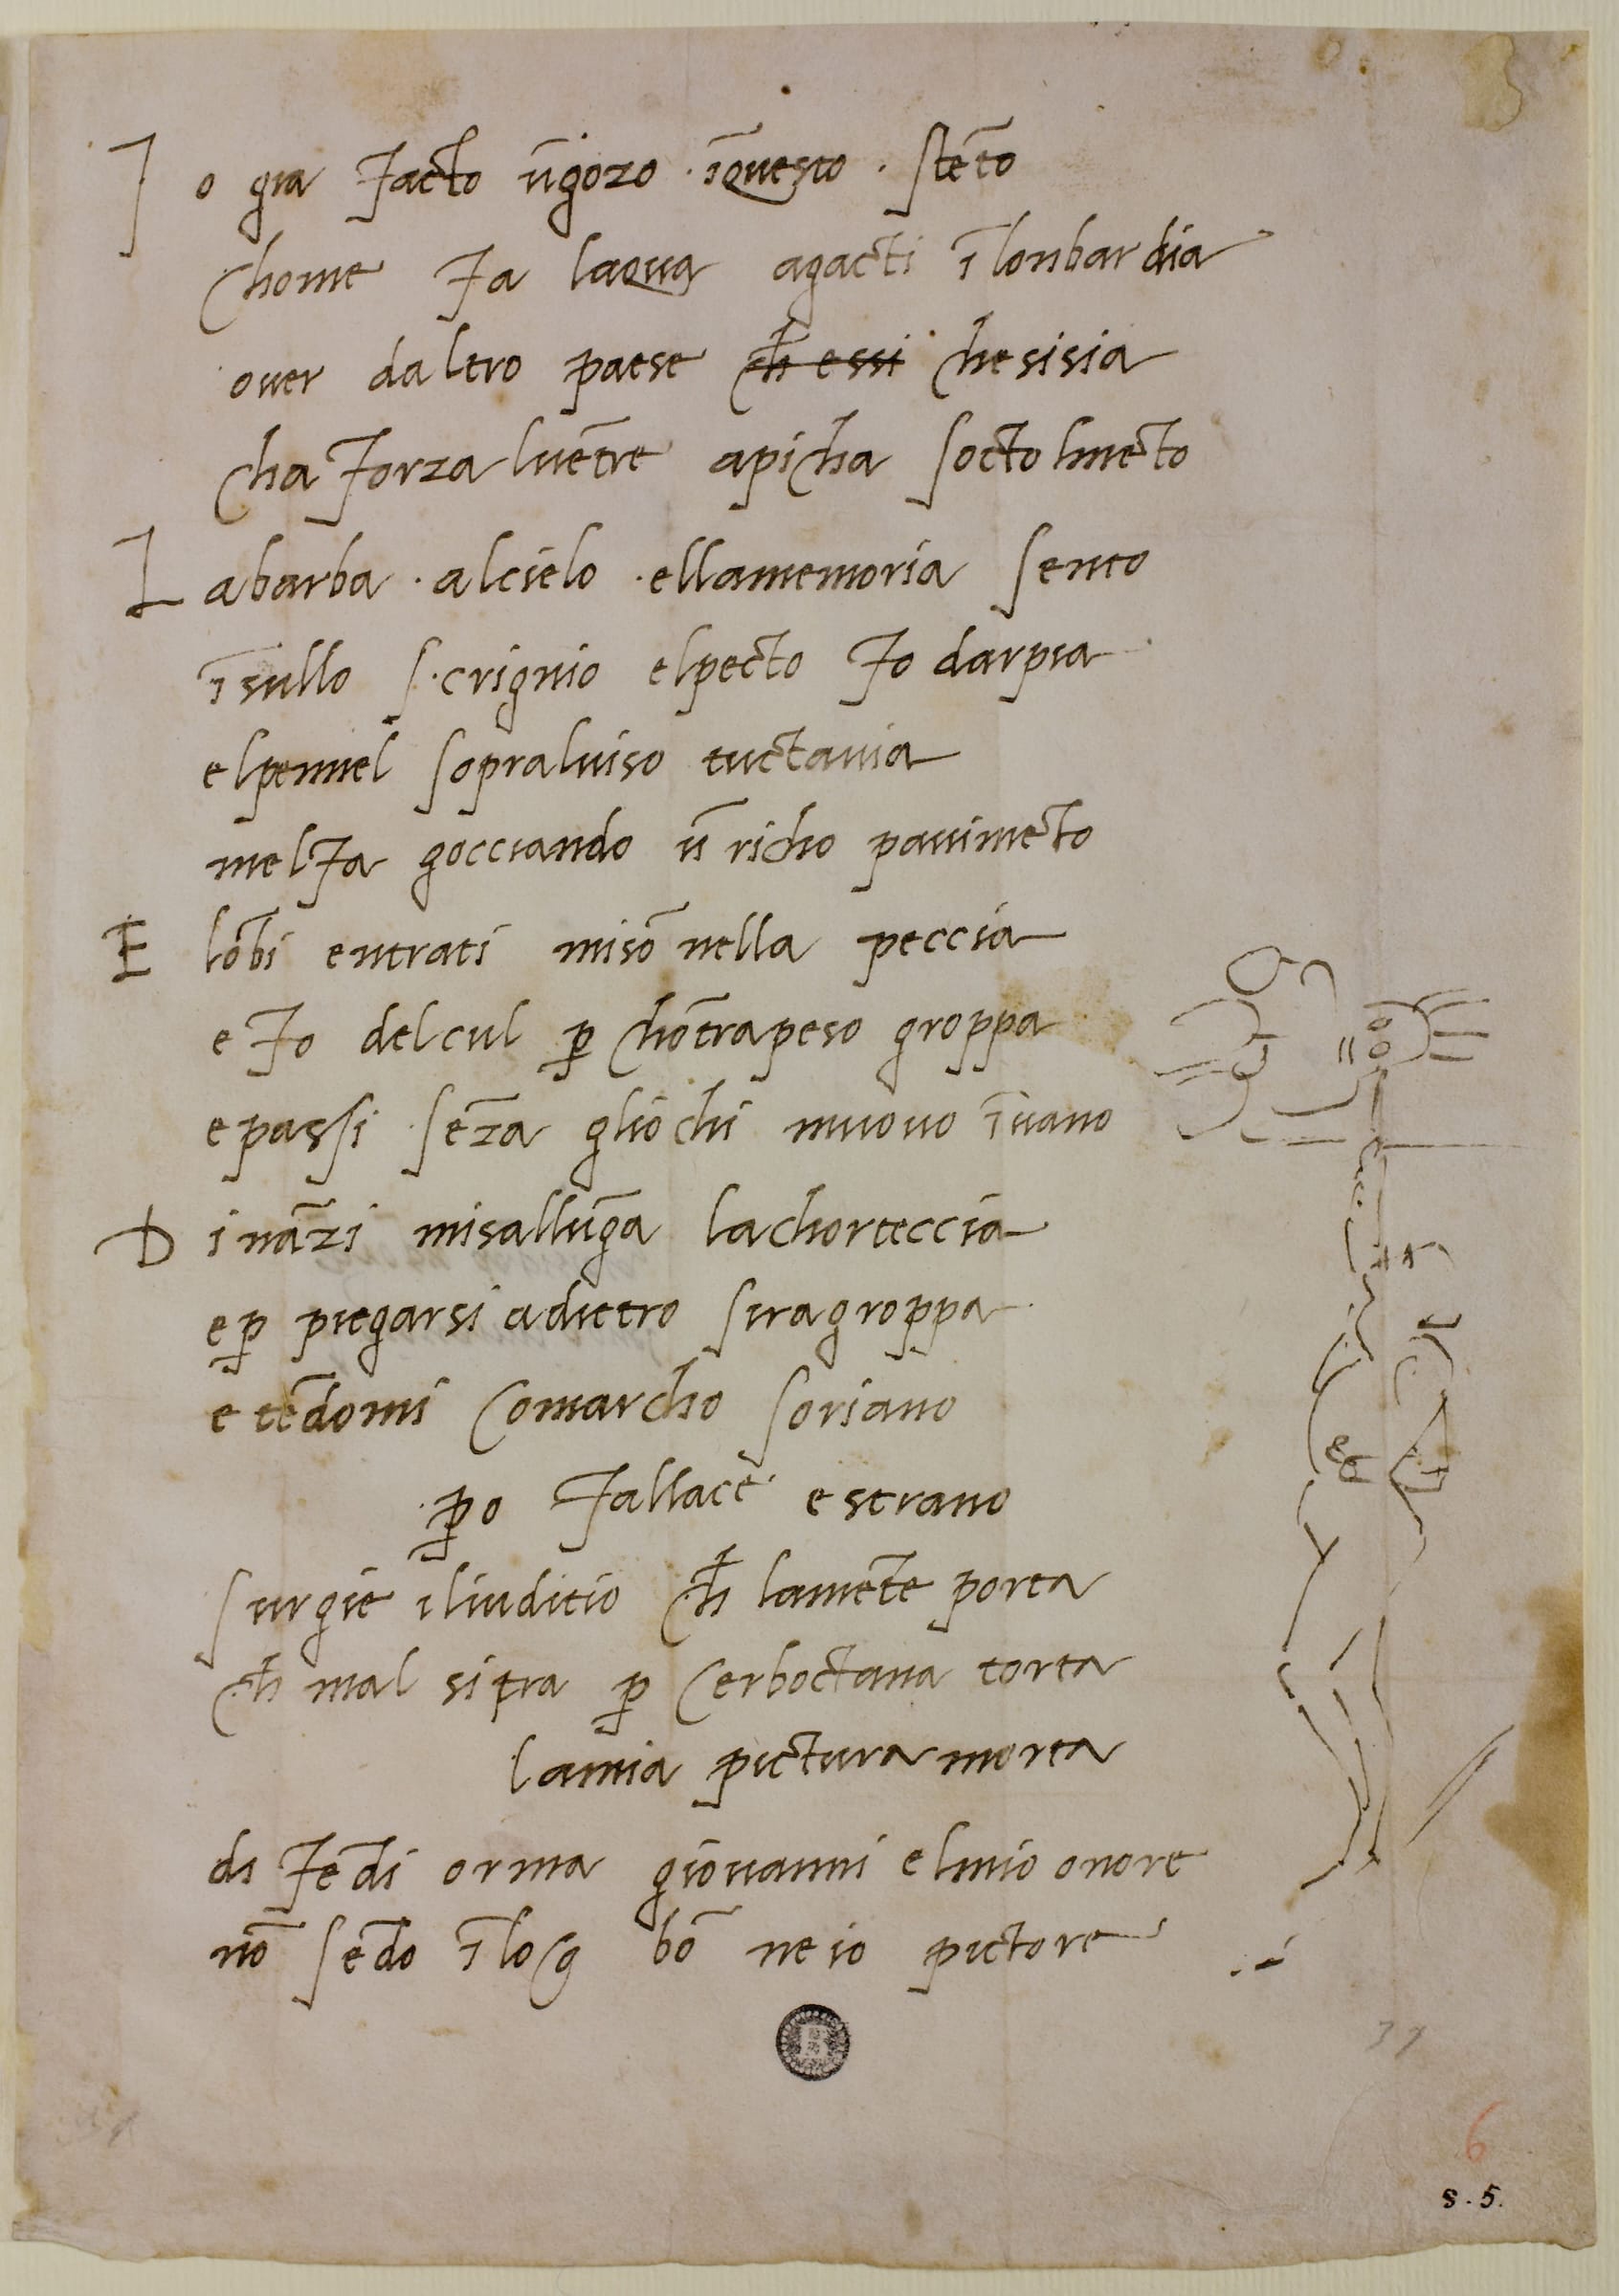 I o gia facto ūgozo · īquesto · stēto
chome fa laqua agacti ī lonbardia
over daltro paese ch̄ essi chesisia
cha forza lvētre apicha socto lmēto
L abarba · alcielo · ellamemoria sento
īsullo scrignio elpecto fo darpia
elpennel sopralviso tuctavia
melfa gocciando ū richo pavimēto
E lōbi entrati misō nella peccia
e fo delcul ꝑ chōtrapeso groppa
epassi sēza gliochi muovo īvano
D ināzi misallūga lachorteccia
eꝑ piegarsi adietro siragroppa
e tēdomi comarcho soriano
ꝑo fallace estrano
surgie iliuditio ch̄ lamēte porta
ch̄ mal si tra ꝑ cerboctana torta
lamia pictura morta
di fēdi orma giovanni elmio onore
nō sēdo ī locho bō ne io pictore
B
37
6
8.5.